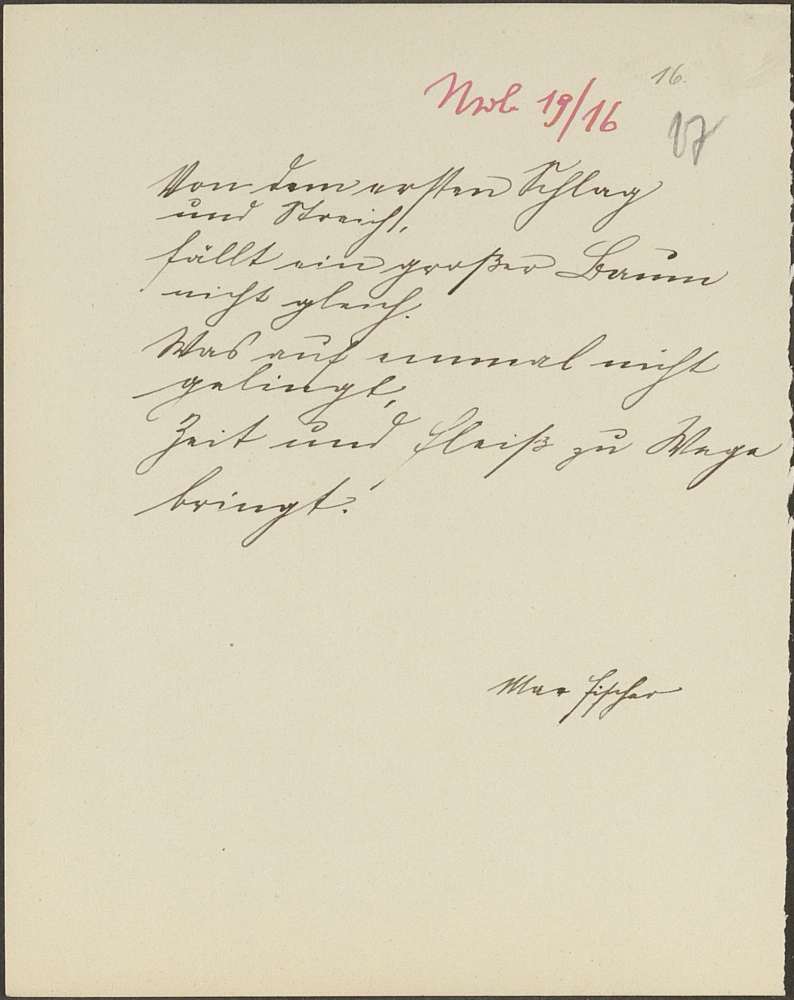 16.
19/16
17
Von dem ersten Schlag
und Streich,
fällt ein großer Baum
nicht gleich.
Was auf einmal nicht
gelingt,
Zeit und Fleiß zu Wege
bringt.
Max Fischer